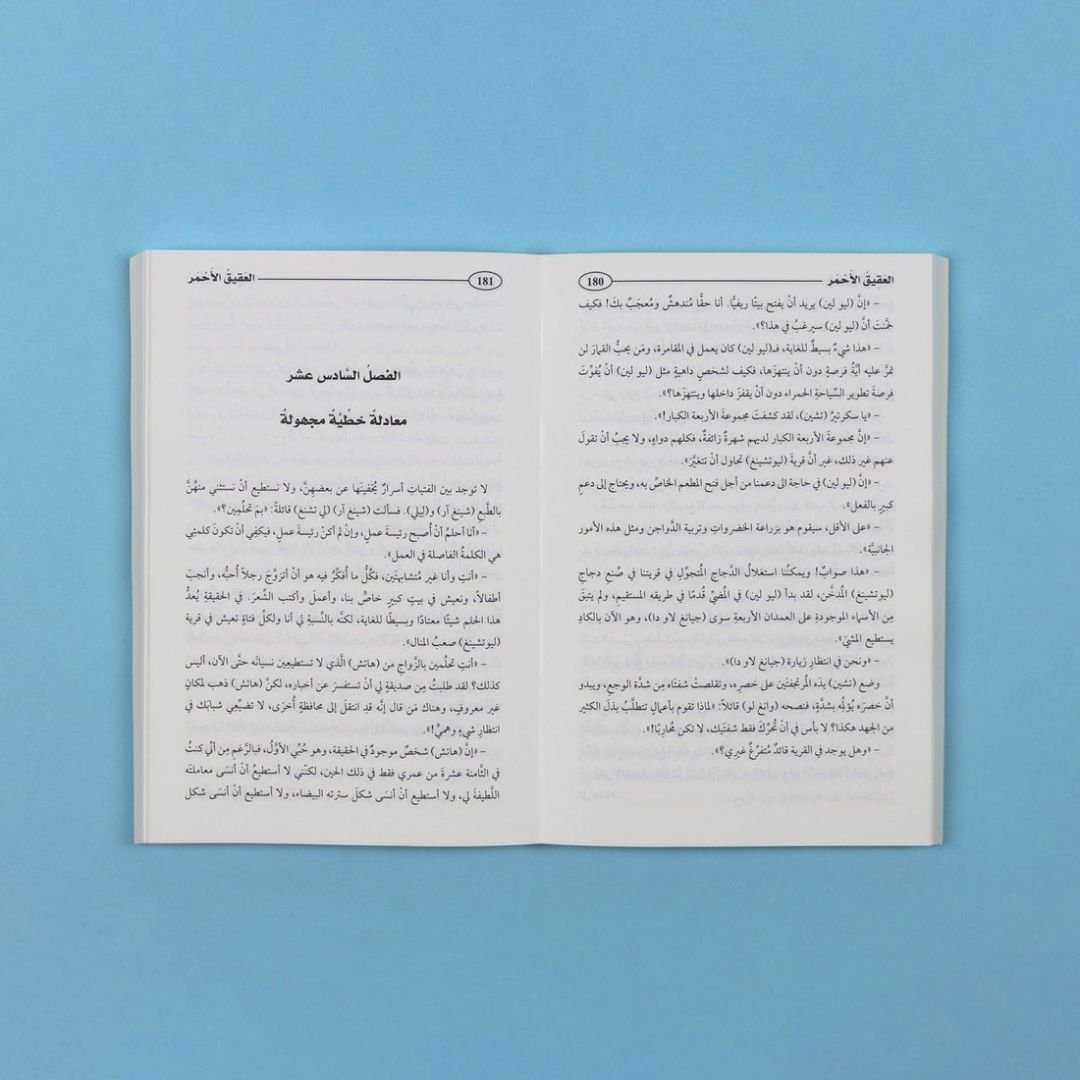 العَقيقُ الأَحْمَر
180
– «إنَّ (ليو لين) يريد أنْ يفتح بيتًا ريفيًّا. أنا حقًّا مُندهشٌ ومُعجَبٌ بكَ! فكيف
خمَّنتَ أنَّ (ليو لين) سيرغبُ في هذا؟».
– «هذا شيءٌ بسيطٌ للغاية، فـ(ليو لين) كان يعمل في المقامرة، ومَن يحبُّ القمارَ لن
تمرَّ عليه أيَّةُ فرصةٍ دون أنْ ينتهزَها، فكيف لشخصٍ داهيةٍ مثل (ليو لين) أنْ يُفوِّتَ
فرصةَ تطوير السِّياحةِ الحمراء دون أنْ يقفزَ داخلها وينتهزَها؟».
– «يا سكرتيرُ (تشين)، لقد كشفتَ مجموعةَ الأربعة الكبار!».
– «إنَّ مجموعةَ الأربعة الكبار لديهم شهرةٌ زائفةٌ، فكلهم دواءٍ، ولا يجبُ أنْ تقولَ
عنهم غير ذلك، غير أنَّ قريةَ (ليوتشينغ) تحاول أنْ تتغيَّرَ».
– «إنَّ (ليو لين) في حاجة الى دعمنا من أجل فتح المطعم الخاصِّ به، ويحتاج إلى دعمٍ
كبيرٍ بالفعل».
– «على الأقل، سيقوم هو بزراعة الخضرواتِ وتربية الدَّواجن ومثل هذه الأمور
الجانبيَّة».
– «هذا صوابٌ! ويمكنُنا استغلالُ الدَّجاج المُتجوِّلِ في قريتنا في صُنعِ دجاجِ
(ليوتشينغ) المُدخَّن، لقد بدأ (ليو لين) في المُضيِّ قُدمًا في طريقه المستقيم، ولم يتبقَ
مِن الأسماء الموجودةِ على العمدان الأربعةِ سوى (جيانغ لاو دا)، وهو الآن بالكادِ
يستطيع المشيَ».
– «ونحن في انتظارِ زيارة (جيانغ لاو دا)».
وضع (تشين) يدَه المُرتجفتَين على خصرِه، وتقلصتْ شفتَاه مِن شدَّة الوجعِ، ويبدو
أنَّ خصرَه يُؤلِمُه بشدَّةٍ، فنصحه (وانغ لو) قائلاً: «لماذا تقوم بأعمالٍ تتطلَّبُ بذلَ الكثير
من الجهد هكذا؟ لا بأس في أنْ تُحرِّكَ فقط شفتَيك، لا تكن مُحاربًا!».
– «وهل يوجد في القرية قائدٌ مُتفرِّغٌ غيري؟».
181
العَقيقُ الأَحْمَر
الفصلُ السَّادس عشر
معادلةٌ خطِّيَّةٌ مجهولةٌ
لا توجد بين الفتياتِ أسرارٌ يُخفينَها عن بعضهنَّ، ولا نستطيع أنْ نستثني منهُنَّ
بالطَّبعِ (شينغ آر) و(ليلي). فسألت (شينغ آر) (لي تشنغ) قائلةً: «بمَ تحلُمين؟».
– «أنا أحلمُ أنْ أُصبحَ رئيسةَ عملٍ، وإنْ لم أكنْ رئيسةَ عملٍ، فيكفي أنْ تكونَ كلمتي
هي الكلمةُ الفاصلة في العمل».
– «أنتِ وأنا غير مُتشابهتَين، فكُلُّ ما أُفكِّرُ فيه هو أنْ أتزوَّجَ رجلاً أُحبُّه، وأُنجبَ
أطفالاً، ونعيش في بيتٍ كبيرٍ خاصٍّ بنا، وأعملَ وأكتب الشِّعرَ. في الحقيقةِ يُعدُّ
هذا الحلم شيئًا معتادًا وبسيطًا للغاية، لكنَّه بالنِّسبةِ لي أنا ولكلِّ فتاةٍ تعيش في قرية
(ليوتشينغ) صعبُ المنال».
– «أنتِ تحلُمين بالزَّواجِ من (هاتش) الَّذي لا تستطيعين نسيانَه حتَّى الآن، أليس
كذلك؟ لقد طلبتُ مِن صديقةٍ لي أنْ تستفسرَ عن أخبارِه، لكنَّ (هاتش) ذهب لمكانٍ
غير معروفٍ، وهناك مَن قال إنَّه قدِ انتقلَ إلى محافظةٍ أُخرَى، لا تضيِّعي شبابَك في
انتظارِ شيءٍ وهميٍّ!».
– «إنَّ (هاتش) شخصٌ موجودٌ في الحقيقة، وهو حُبِّي الأوَّلُ، فبالرَّغمِ مِن أنِّي كنتُ
في الثَّامنة عشرةَ من عمري فقط في ذلك الحين، لكنّني لا أستطيعُ أنْ أنسَى معاملتَه
اللَّطيفةَ لي، ولا أستطيع أنْ أنسَى شكلَ سترته البيضاء، ولا أستطيع أنْ أنسَى شكل